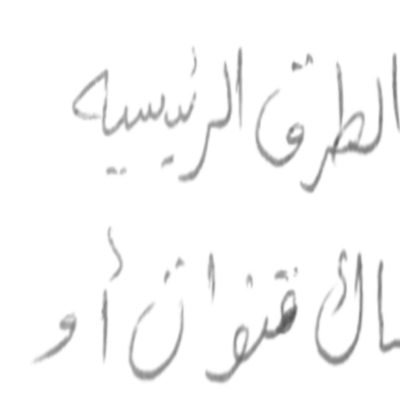 الطرق الرئيسيه
قنوات أو